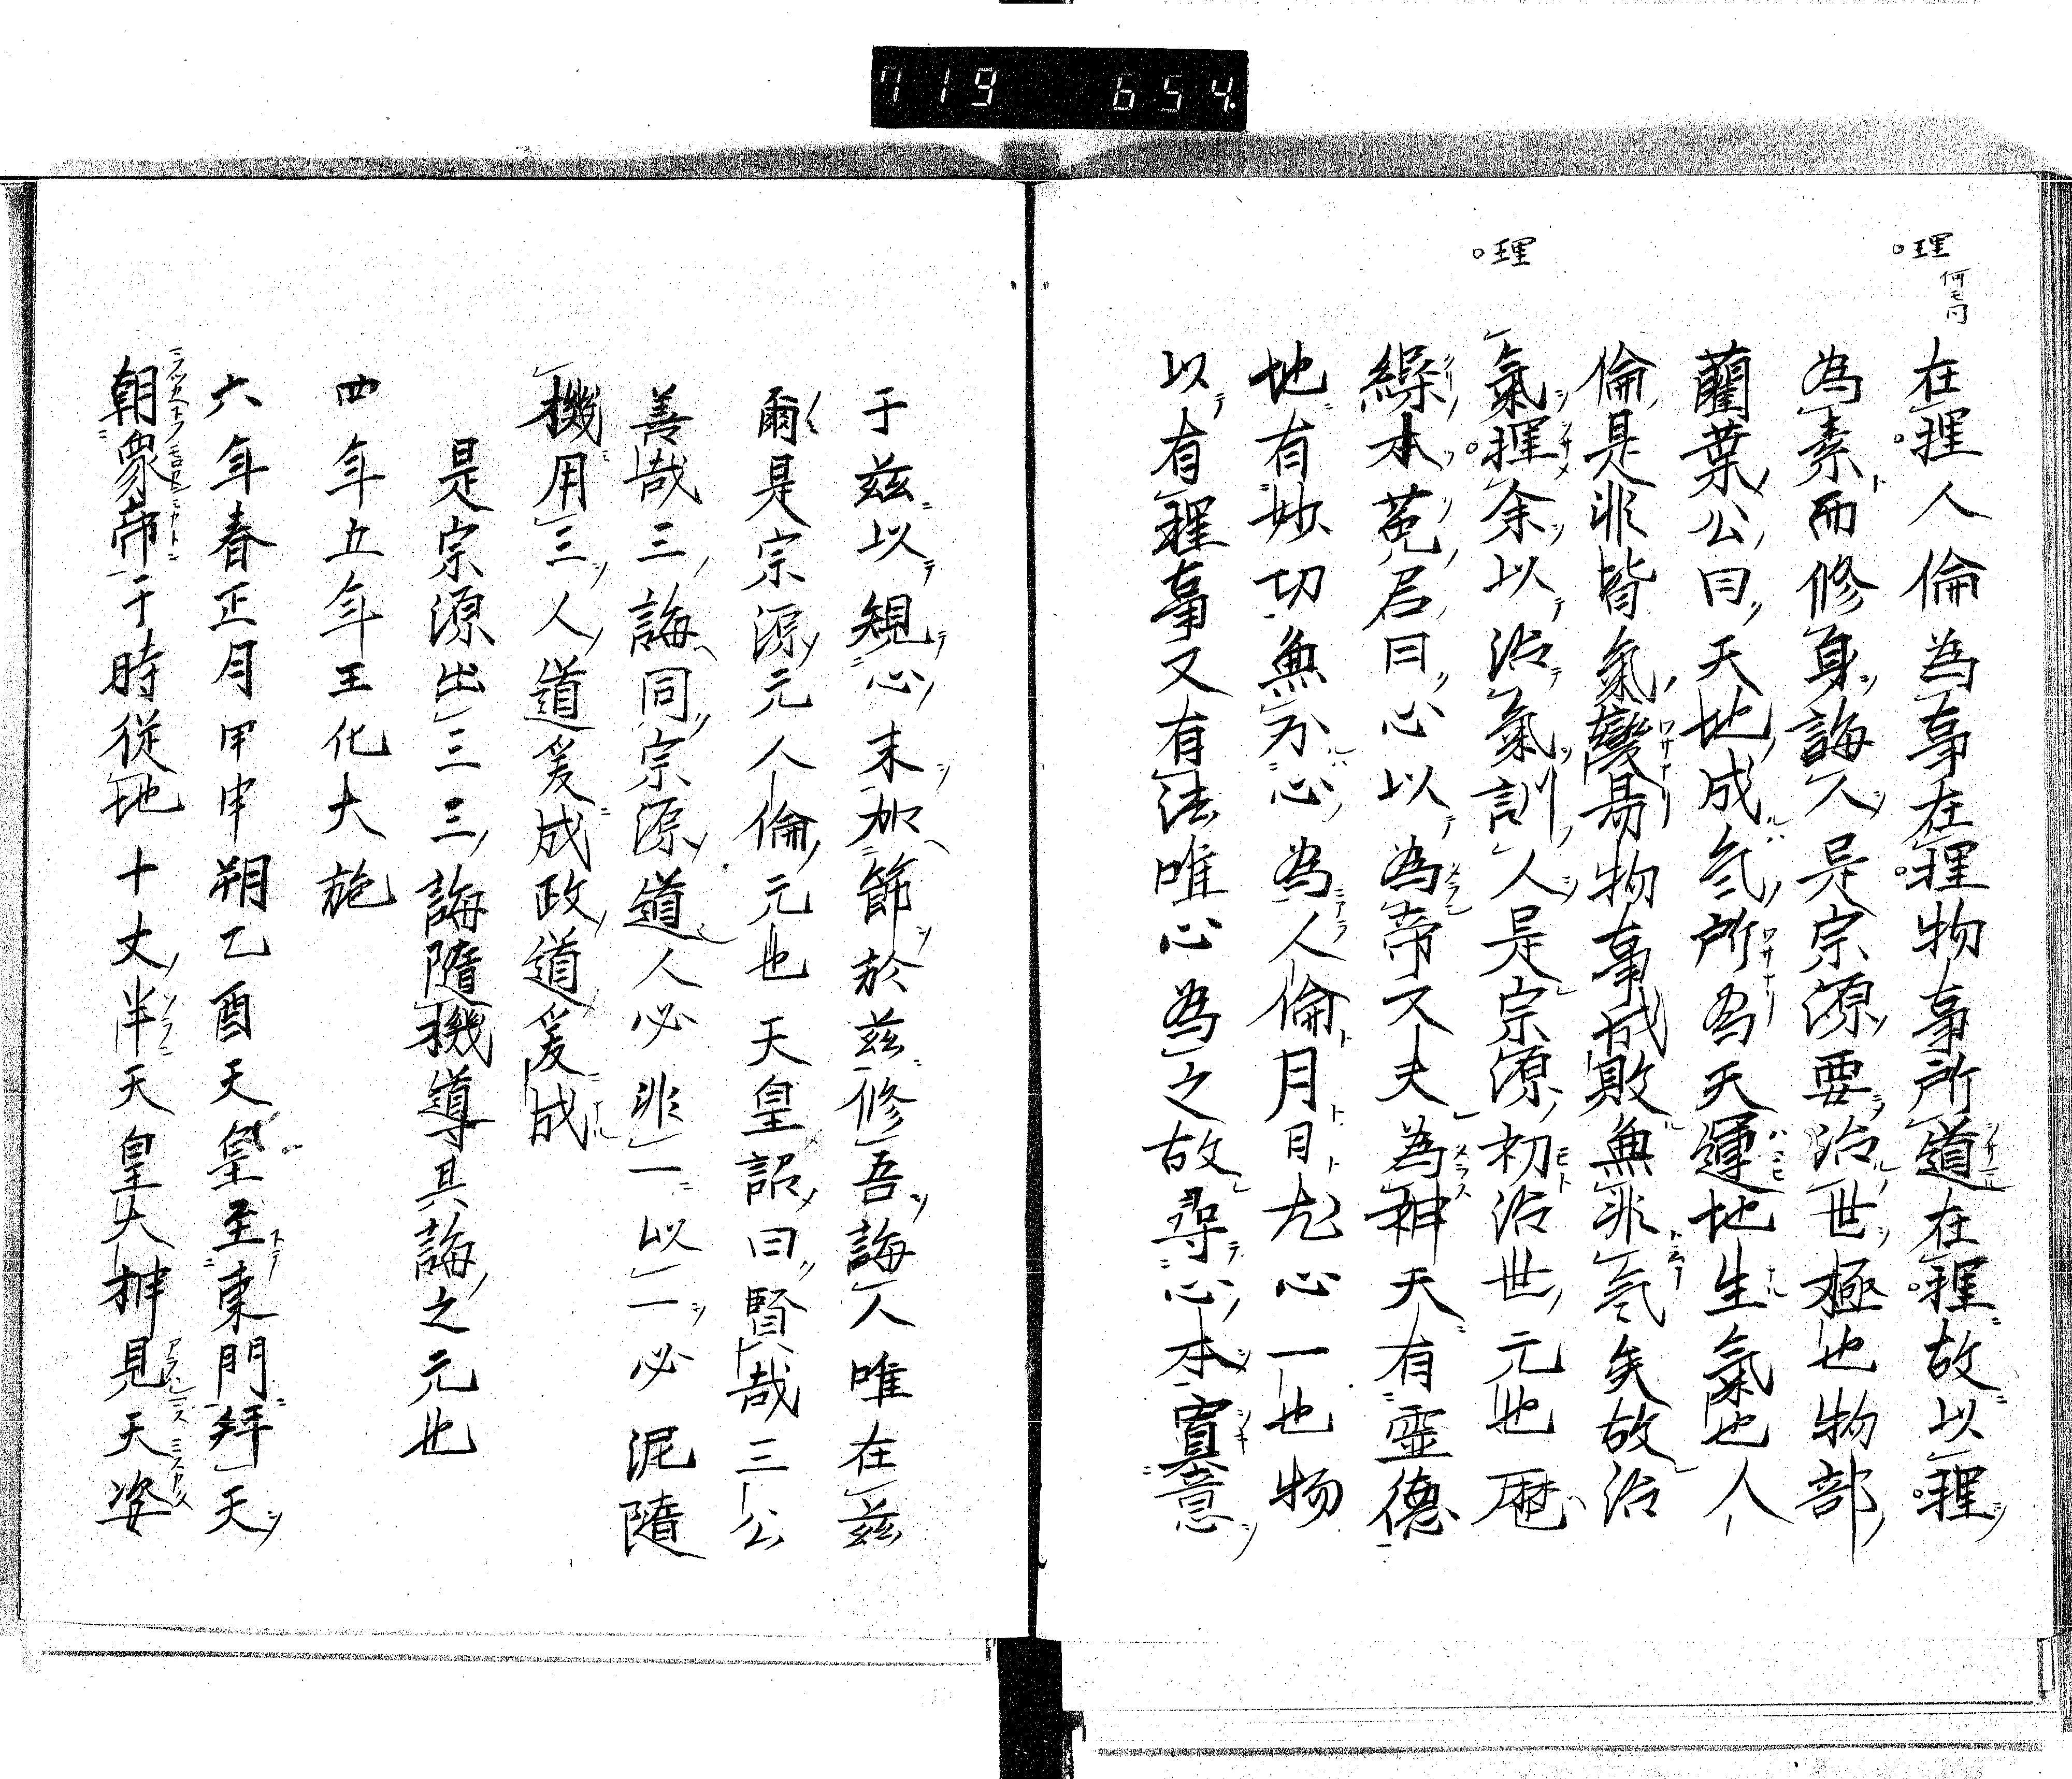 719 654.
理 何モ同
在理人倫為事在理物事所道在理故以理
為素而修身誨人是宗源要治世極也物部
藺葉公曰天地成氣所為天運地生氣也人
倫是非皆氣變易物事成敗無非氣矣故治
理
氣理余以治氣訓人是宗源初治世元也歴
繰木莬君曰心以為帝又夫為神天有霊德
地有妙功無不心為人倫月日尤心一也物
以有理事又有法唯心為之故尋心本寘意
于茲以規心末加節於茲修吾誨人唯在茲
爾是宗源元人倫元也天皇詔曰賢哉三公
善哉三誨同宗源道人必非一以一必泥隨
機用三人道爰成政道爰成
是宗源出三三誨隨機導其誨之元也
四年五年王化大施
六年春正月甲申朔乙酉天皇至東門拜天
朝象帝于時從地十丈半天皇大神見天姿